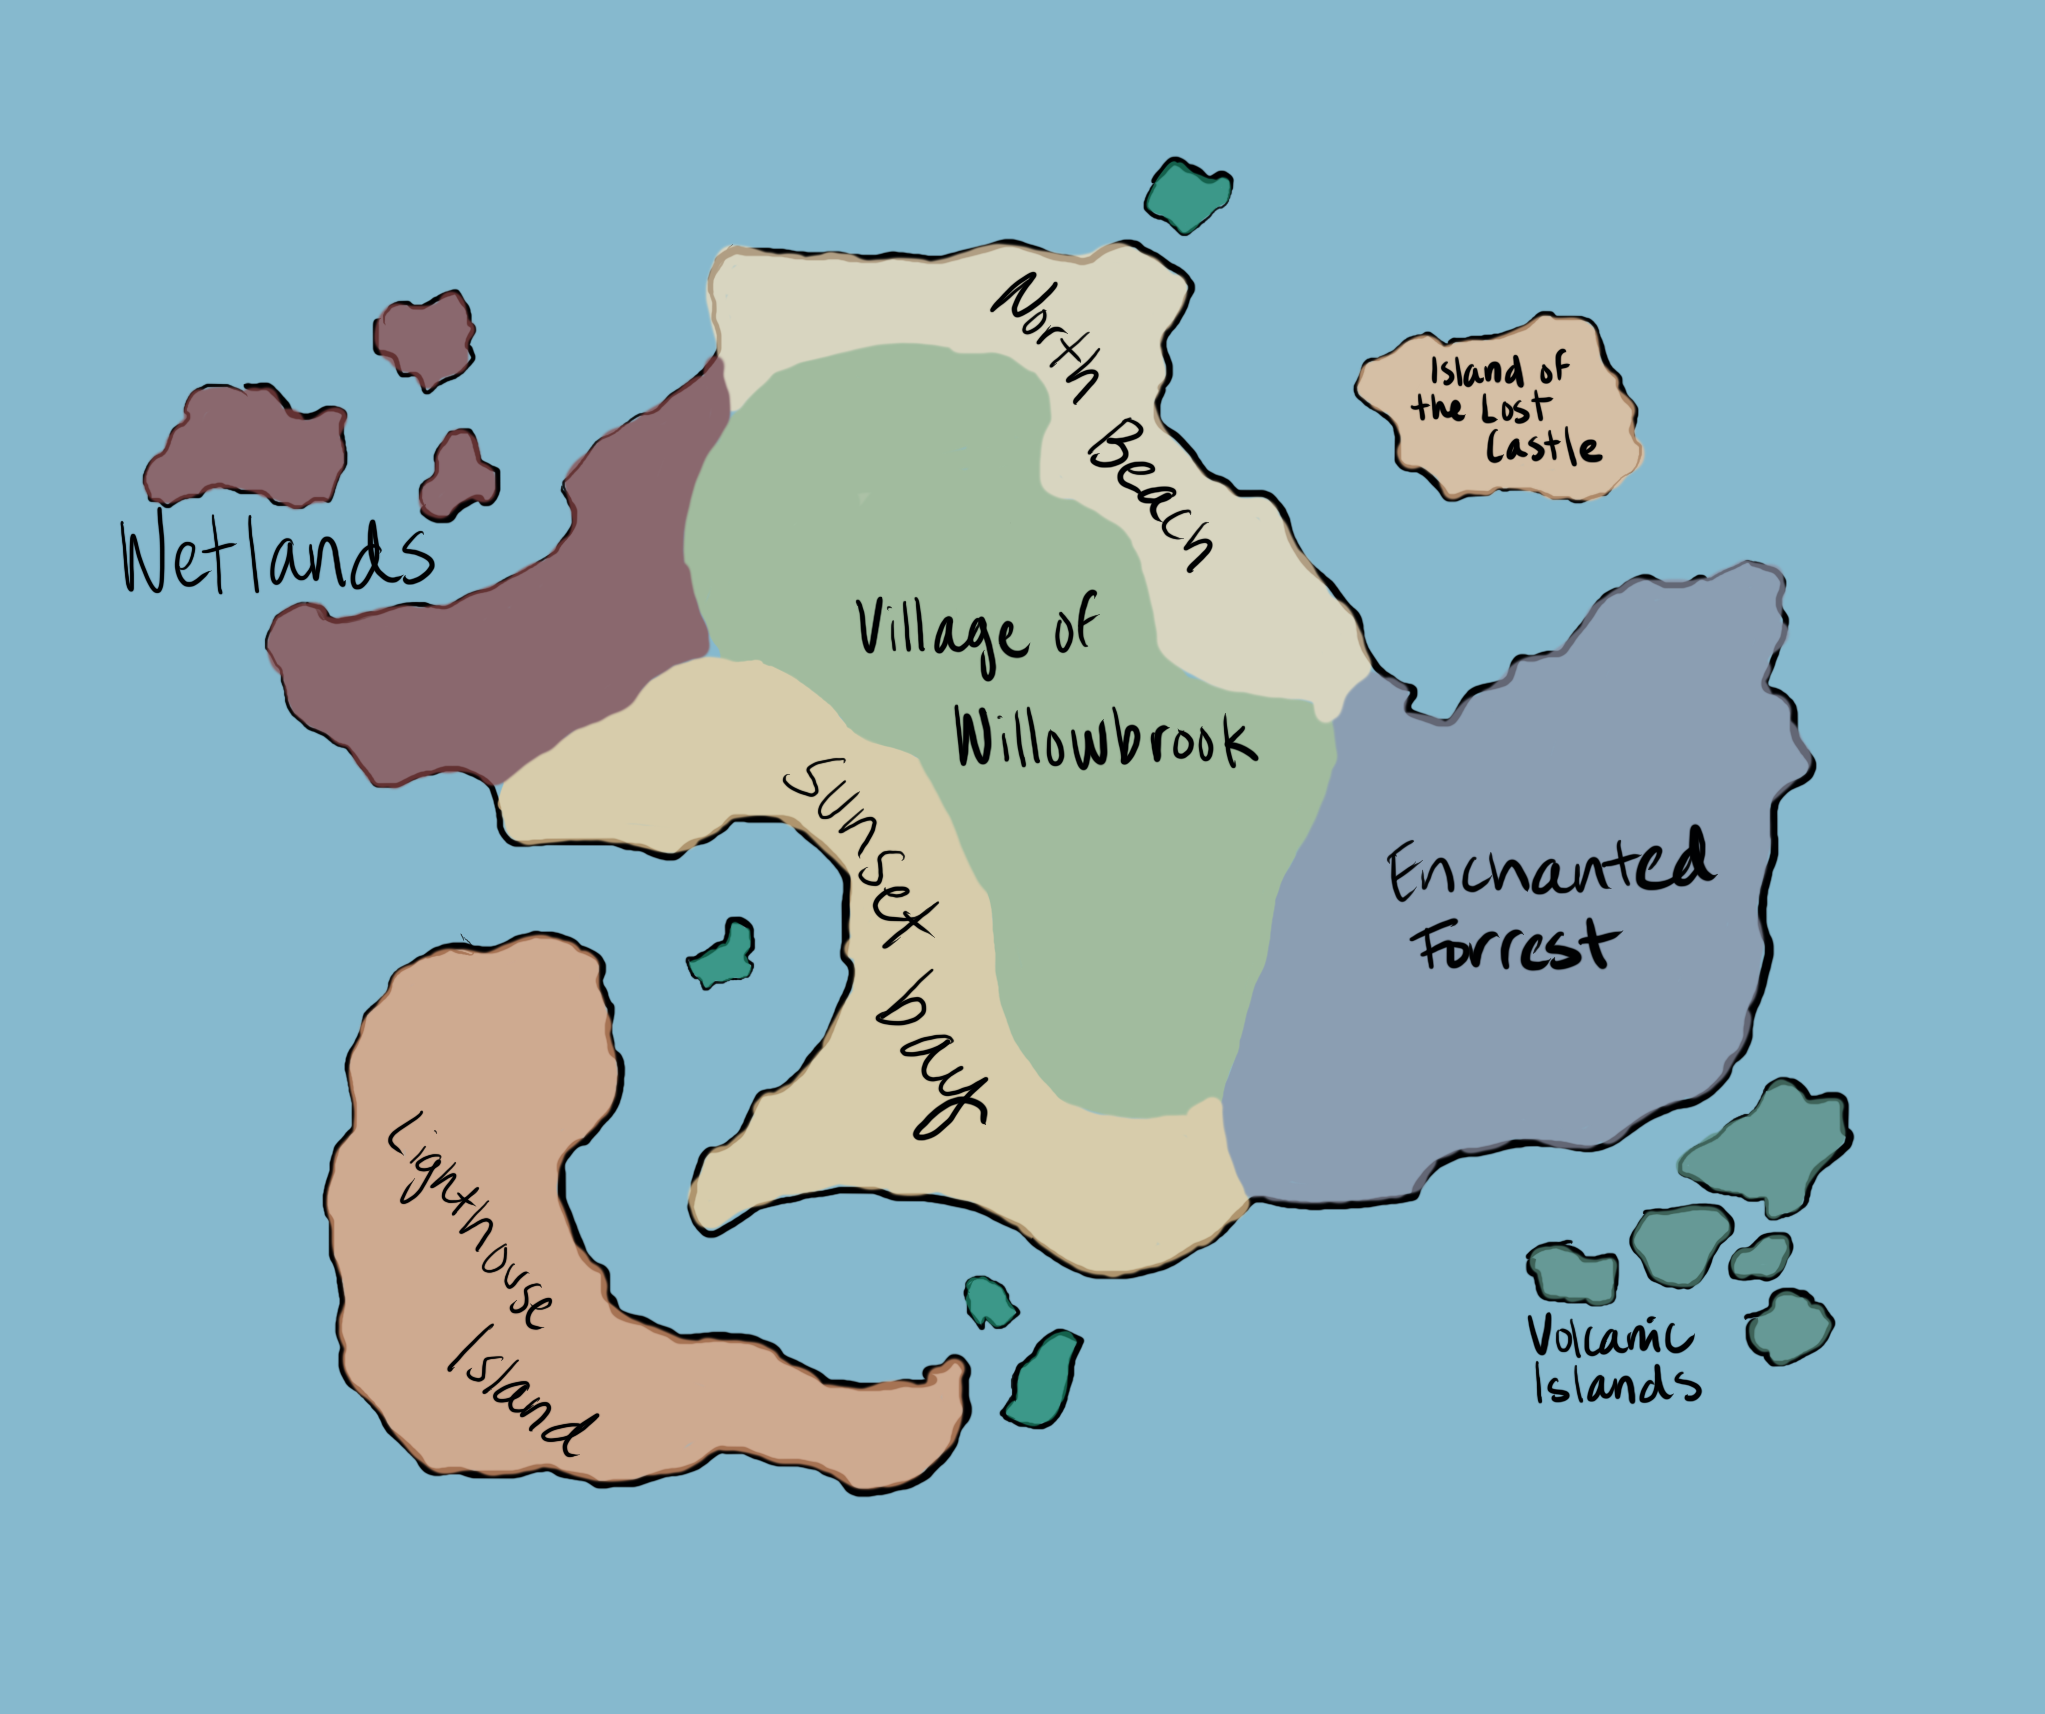 North Beach
Island of
the Lost
Castle
Wetlands
Village of
Willowbrook
Sunset bay
Enchanted
Forrest
Lighthouse
Island
Volcanic
Islands